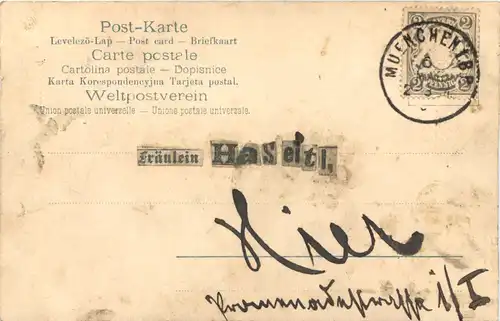 Post-Karte
Levelező-Lap — Post card — Briefkaart
Carte postale
Cartolina postale — Dopisnice
Karta Korespondencyjna Tarjeta postal.
Weltpostverein
Union postale universelle — Unione postale universale.
2 2
2 PFENNIG 2
Fräulein Haseitl.
Hier
Promenadestrasse 1/I